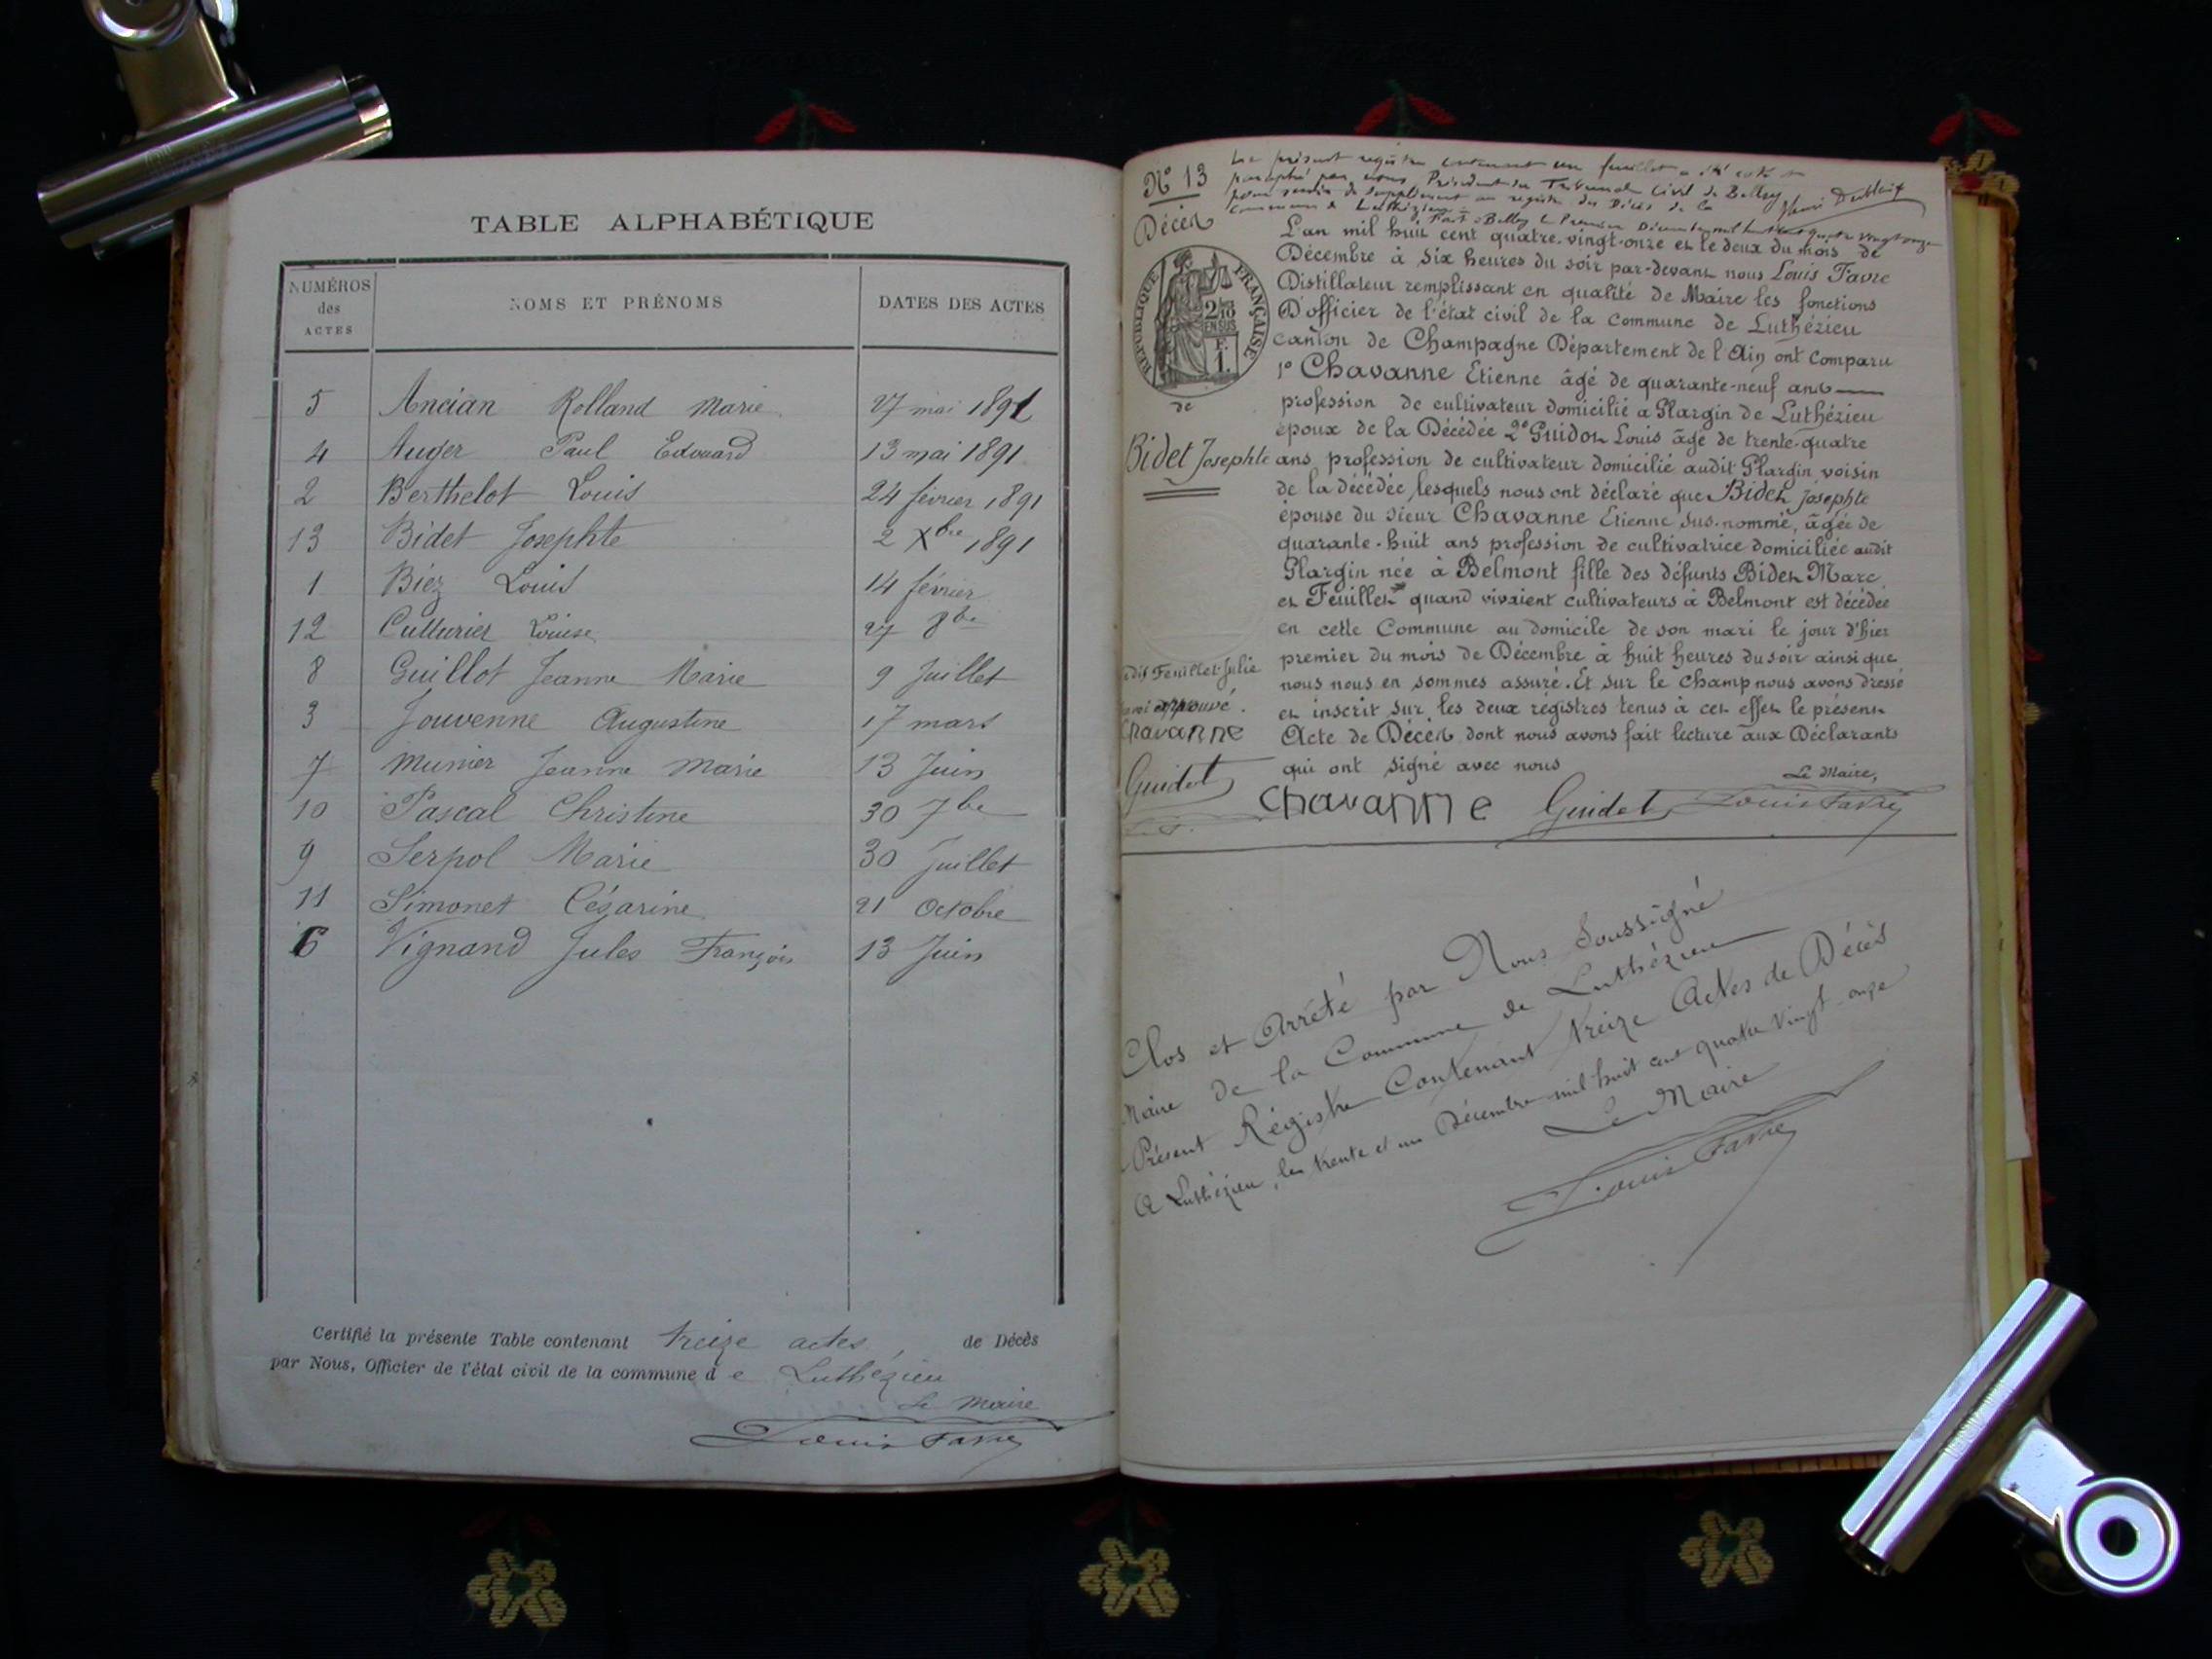 TABLE ALPHABÉTIQUE
NUMÉROS des ACTES NOMS ET PRÉNOMS DATES DES ACTES
5 Ancian Rolland Marie 27 mai 1891
4 Auger Paul Edouard 13 mai 1891
2 Berthelot Louis 24 février 1891
13 Bidet Josephte 2 Xbre 1891
1 Biez Louis 14 février
12 Cutturier Louise 27 8bre
8 Guillot Jeanne Marie 9 Juillet
3 Jouvenne Augustine 17 mars
7 Munier Jeanne Marie 13 Juin
10 Pascal Christine 30 7bre
9 Serpol Marie 30 Juillet
11 Simonet Césarine 21 Octobre
6 Vignand Jules François 13 Juin
Certifié la présente Table contenant treize actes de Décès
par Nous, Officier de l'état civil de la commune d e Luthézieu
Le Maire
Louis Favre
Nº 13
Le présent registre contenant un feuillet a été coté et
paraphé par nous Président du Tribunal Civil de Belley
pour servir de supplément au registre des Décès de la
commune de Luthézieu
Fait à Belley le Premier Décembre mil huit cent quatre vingt onze
Décès
RÉPUBLIQUE FRANÇAISE
2/10 EN SUS
F. 1.
de
Bidet Josephte
L'an mil huit cent quatre-vingt-onze et le deux du mois de
Décembre à six heures du soir par-devant nous Louis Favre
Distillateur remplissant en qualité de Maire les fonctions
D'officier de l'état civil de la commune de Luthézieu
canton de Champagne Département de l'Ain ont comparu
1º Chavanne Etienne âgé de quarante-neuf ans
profession de cultivateur domicilié a Plargin de Luthézieu
époux de la Décédée 2º Guidot Louis âgé de trente-quatre
ans profession de cultivateur domicilié audit Plargin voisin
de la décédée, lesquels nous ont déclaré que Bidet Josephte
épouse du sieur Chavanne Etienne sus-nommé, âgée de
quarante-huit ans profession de cultivatrice domiciliée audit
Plargin née à Belmont fille des défunts Bidet Marc
et Feuillet quand vivaient cultivateurs à Belmont est décédée
en cette Commune au domicile de son mari le jour d'hier
premier du mois de Décembre à huit heures du soir ainsi que
nous nous en sommes assuré. Et sur le champ nous avons dressé
et inscrit sur les deux régistres tenus à cet effet le présent
Acte de Décès dont nous avons fait lecture aux Déclarants
qui ont signé avec nous
Le Maire,
Feuillet Julie
approuvé.
Chavanne
Guidot
Chavanne Guidot Louis Favre
Clos et Arrêté par Nous Soussigné
Maire de la Commune de Luthézieu
Présent Régistre Contenant treize Actes de Décès
A Luthézieu, les trente et un Décembre mil huit cent quatre vingt-onze
Le Maire
Louis Favre